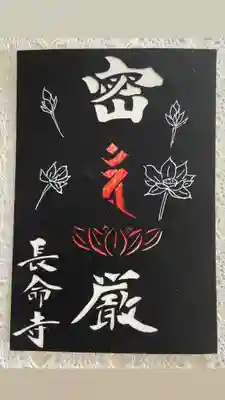 密
𑖮𑖿𑖨𑖱𑖾
厳
長命寺